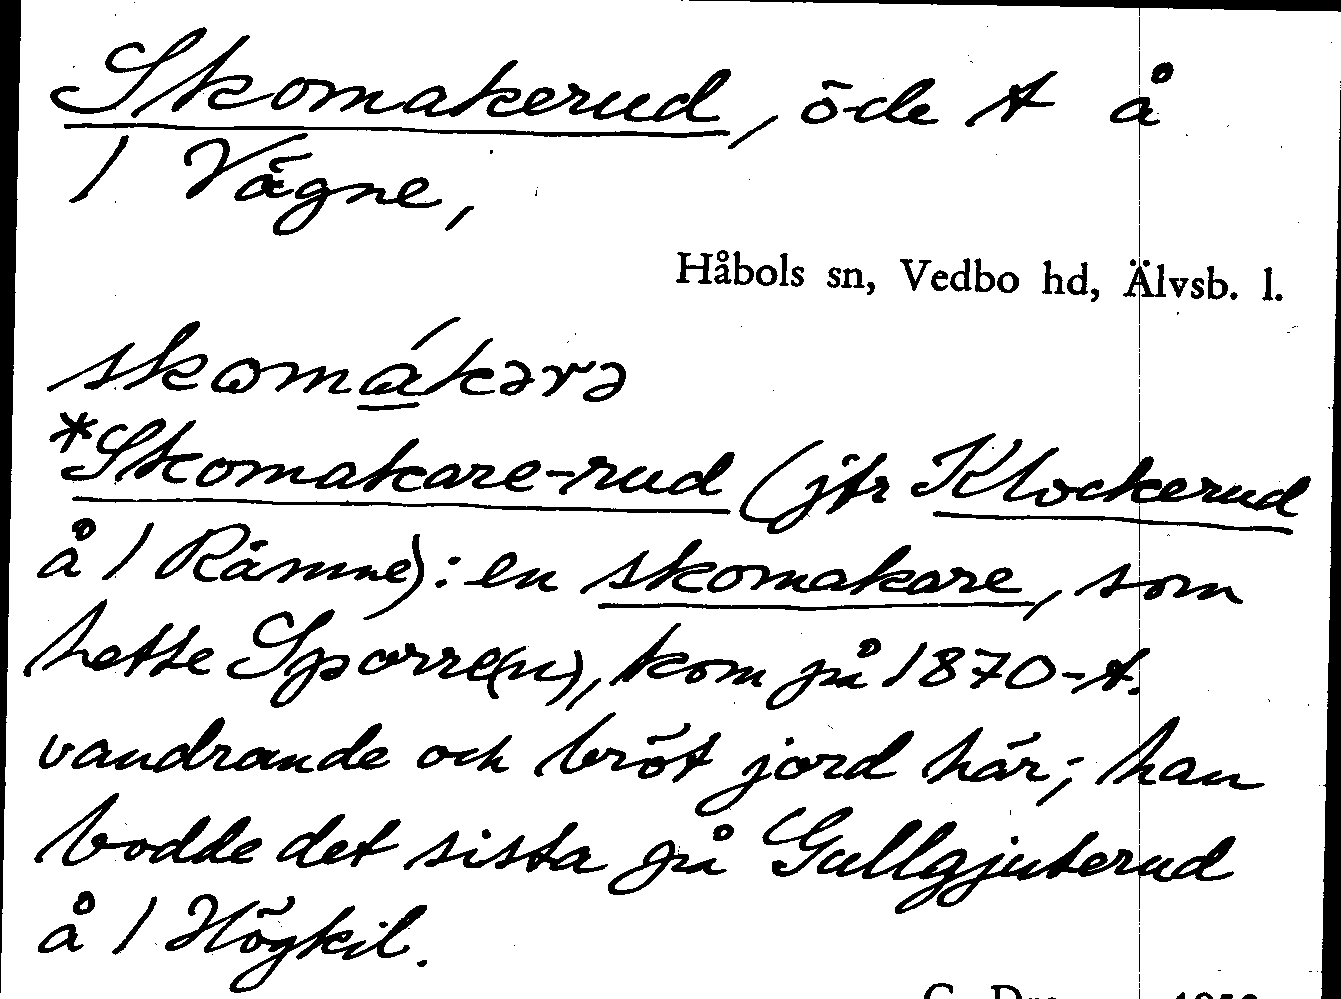 Skomakerud, öde t å
1 Vägne,
Håbols sn, Vedbo hd, Älvsb. l.
skomákərə
*Skomakare-rud (jfr Klockerud
å 1 Rämne): en skomakare, som
hette Sparre(n), kom på 1870-t.
vandrande och bröt jord här; han
bodde det sista på Gullgjuterud
å 1 Högkil.